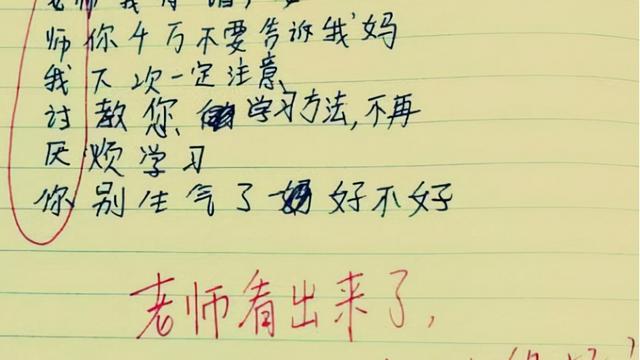 老师我
师你千万不要告诉我妈
我下次一定注意
讨教您、学习方法,不再
厌烦学习
你别生气了好不好
老师看出来了,